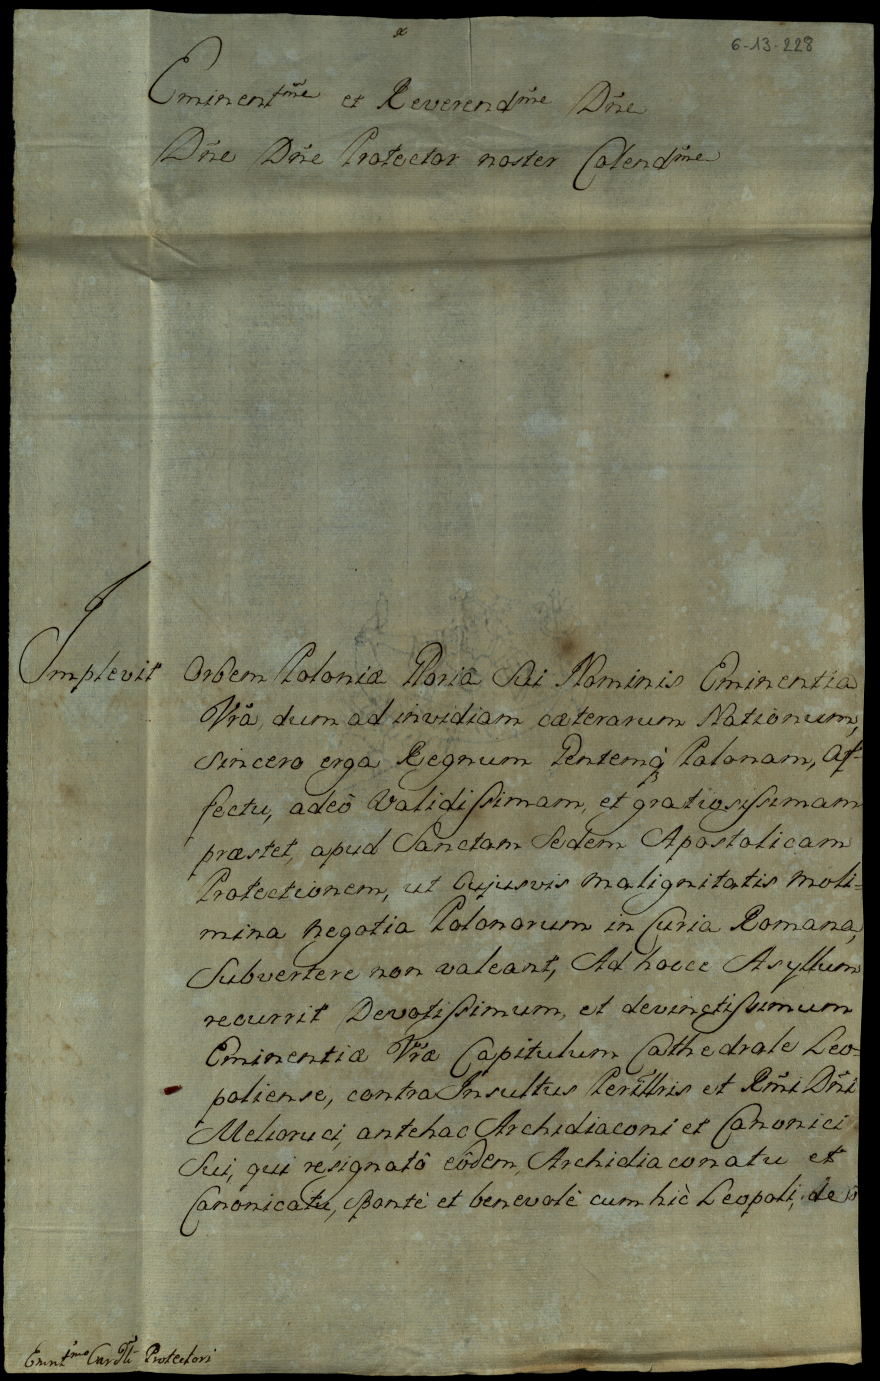 6-13-228
Eminent^me et Reverend^me Dñe
Dñe Dñe Protector noster Colend^me
Implevit Orbem Poloniæ Gloriâ Sui Nominis Eminentia
Vrã, dum ad invidiam cæterarum Nationum,
sincero erga Regnum Gentemq̃ Polonam, Af-
fectu, adeò validissimam, et gratiosissimam
præstet, apud Sanctam Sedem Apostolicam
Protectionem, ut Cujusvis malignitatis moli=
mina negotia Polonorum in Curia Romana,
Subvertere non valeant, Ad hocce Asyllum
recurrit Devotissimum, et devinctissimum
Eminentiæ Vræ Capitulum Cathedrale Leo=
poliense, contra Insultus Perillris et Rm̃i Dñi
Melioruci, antehac Archidiaconi et Canonici
Sui, qui resignatô eôdem, Archidiaconatu et
Canonicatu, Spontè et benevolè cum hìc Leopoli, de
Emnt^imo Cardli Protectori